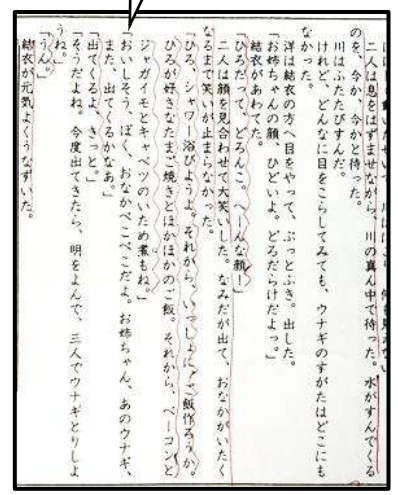 二人は息をはずませながら、川の真ん中で待った。水がすんでくる
のを、今か、今かと待った。
川はふたたびすんだ。
けれど、どんなに目をこらしてみても、ウナギのすがたはどこにも
なかった。
洋は結衣の方へ目をやって、ぷっとふき。出した。
「お姉ちゃんの顔、ひどいよ。どろだらけだよっ。」
結衣があわてた。
「ひろだって、どろんこ。へんな顔！」
二人は顔を見合わせて大笑いした。なみだが出て、おなかがいたく
なるまで笑いが止まらなかった。
「ひろ、シャワー浴びようよ。それから、いっしょに、ご飯作ろうか。
ひろが好きなたまご焼きとほかほかのご飯。それから、ベーコンと
ジャガイモとキャベツのいため煮もね。」
「おいしそう、ぼく、おなかぺこぺこだよ。お姉ちゃん、あのウナギ、
また、出てくるかなあ。」
「出てくるよ、きっと。」
「そうだよね。今度出てきたら、明をよんで、三人でウナギとりしよ
うね。」
「うん。」
結衣が元気よくうなずいた。